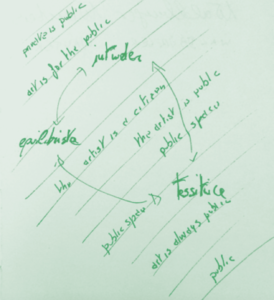 practice is public
art is for the public
intruder
equilibrista
the artist is a citizen
the artist is public
public speech
tessitrice
public speech
art is always public
public